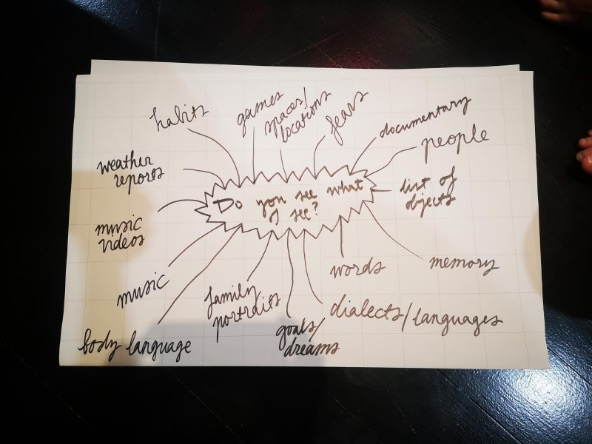 habits
games
spaces/
locations
fears
documentary
people
weather
repors
Do you see what
I see?
list of
objects
music
videos
music
family
portraits
words
memory
body language
goals/
dreams
dialects/languages